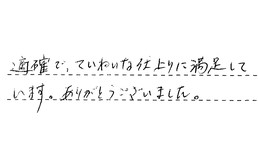 適確で、ていねいな仕上りに満足して
います。ありがとうございました。